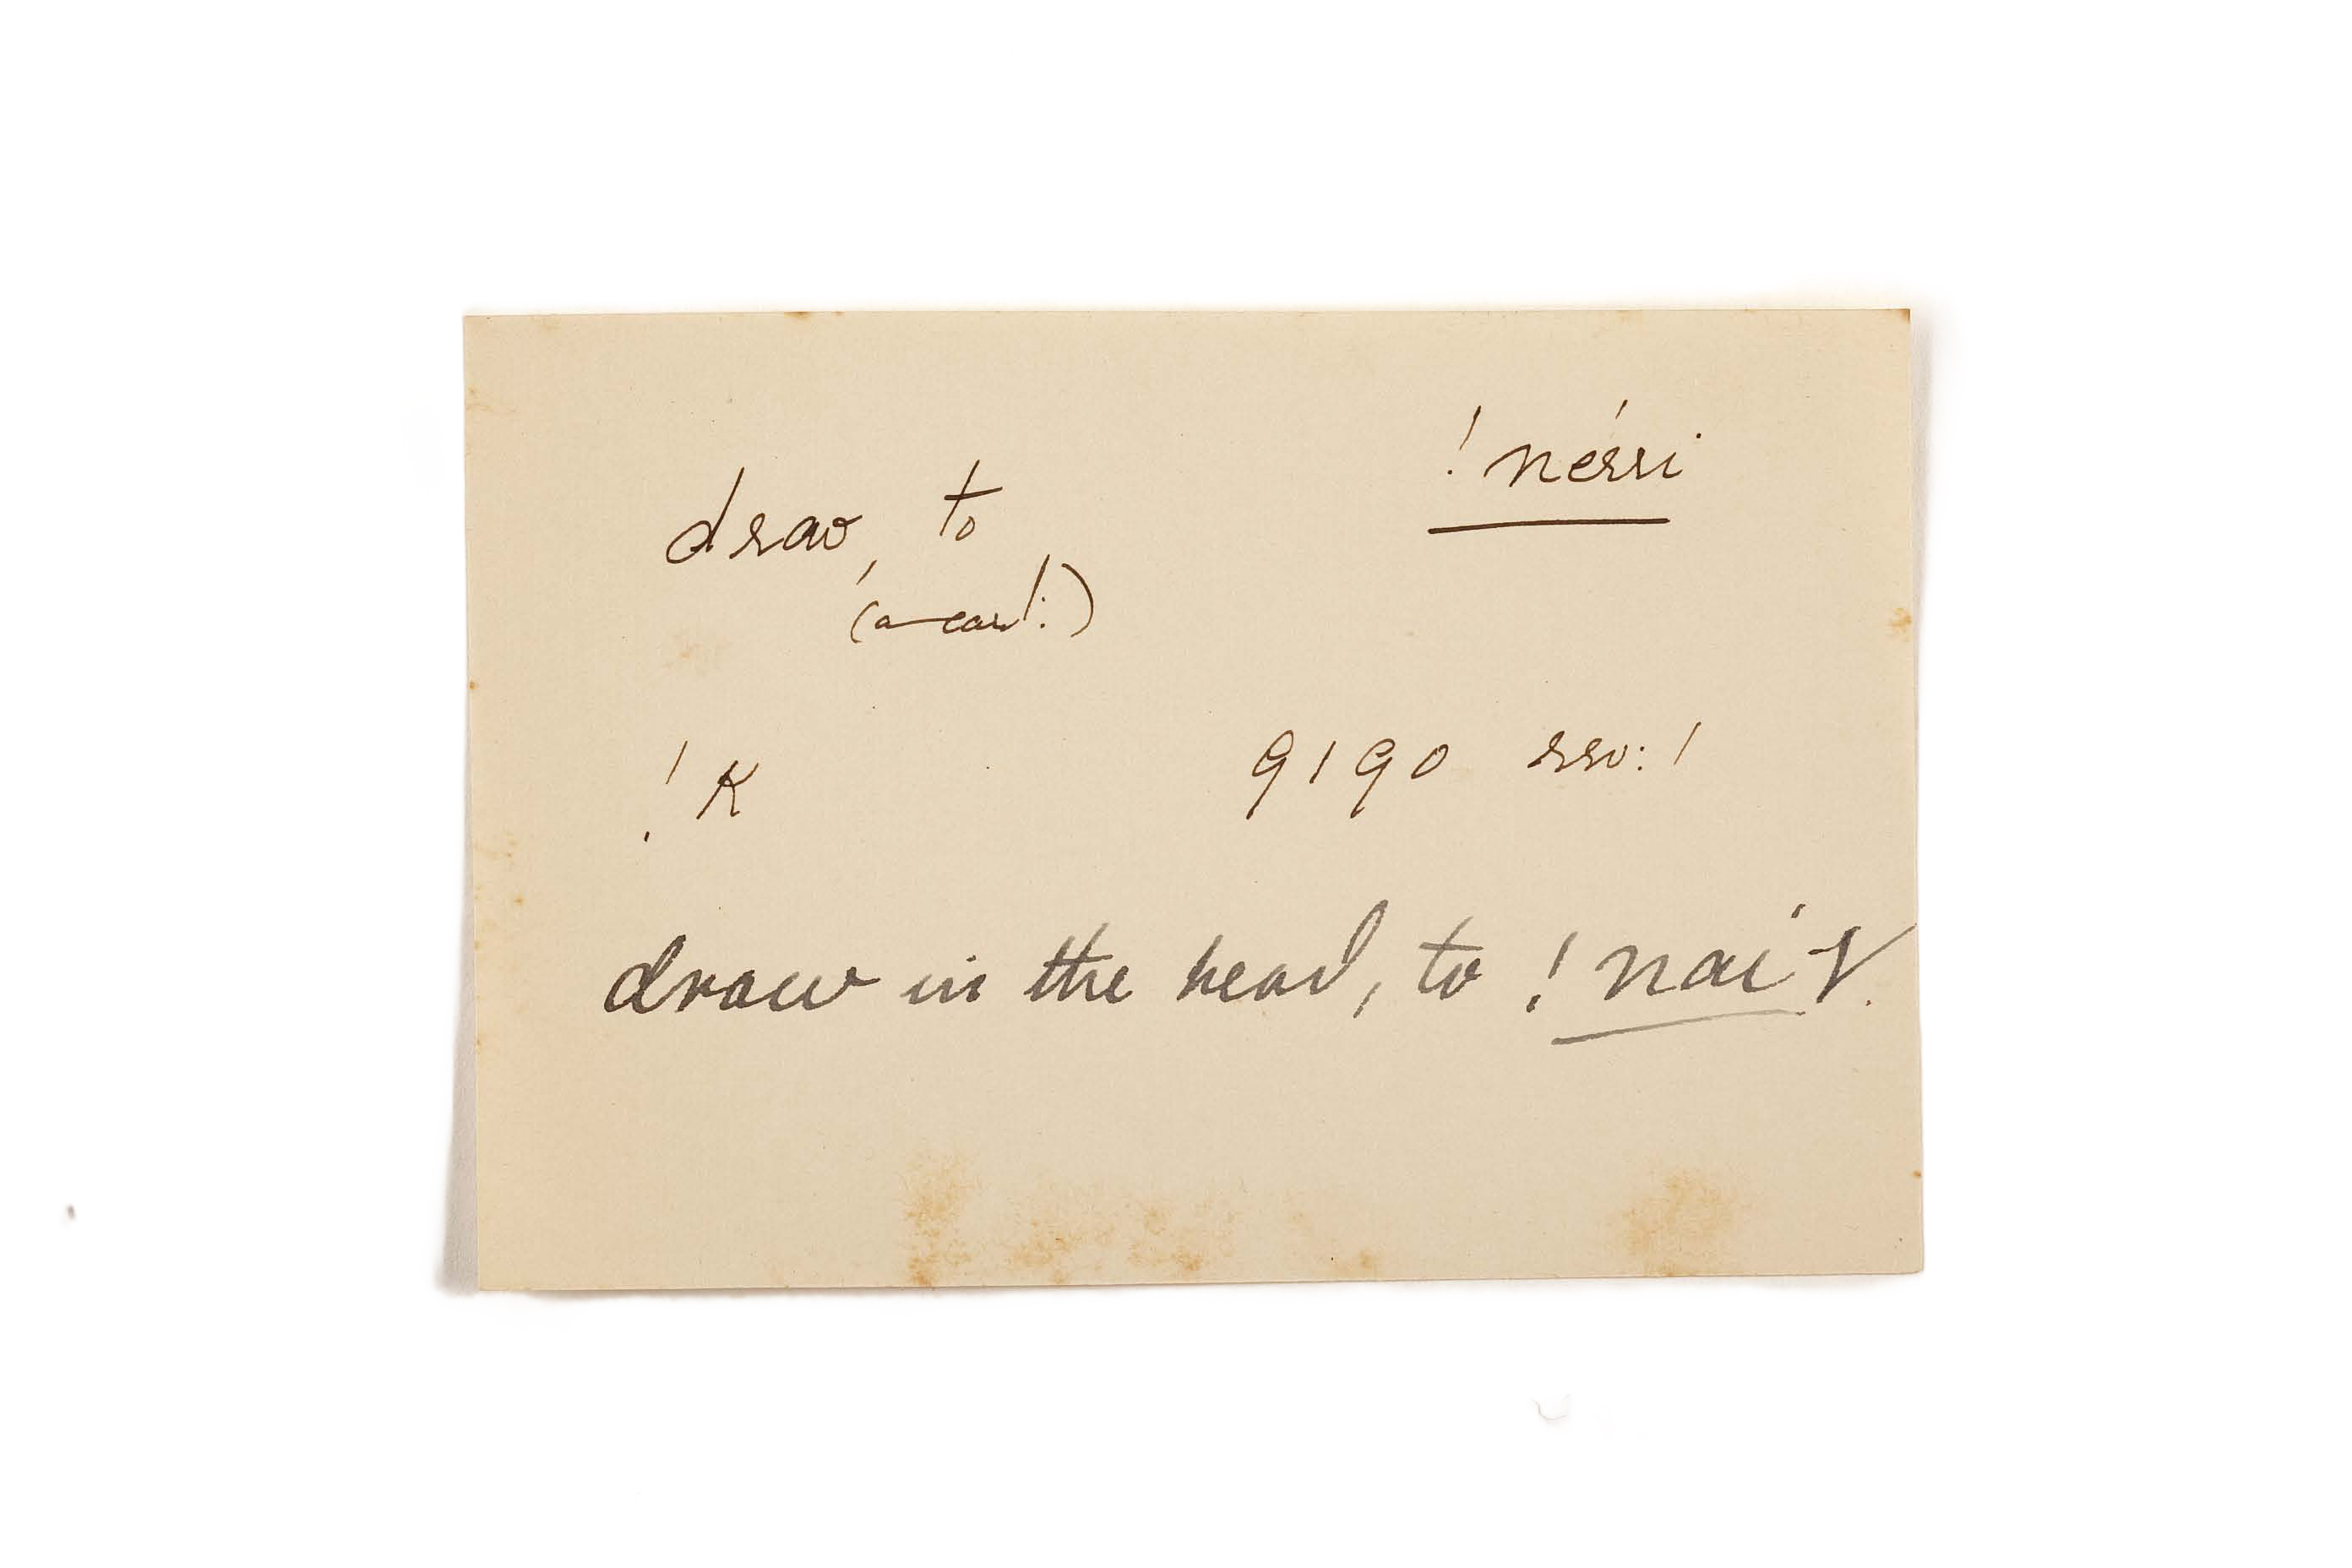 draw, to !nérri
(a card:)
!K 9190 rev:!
draw in the head, to !nai